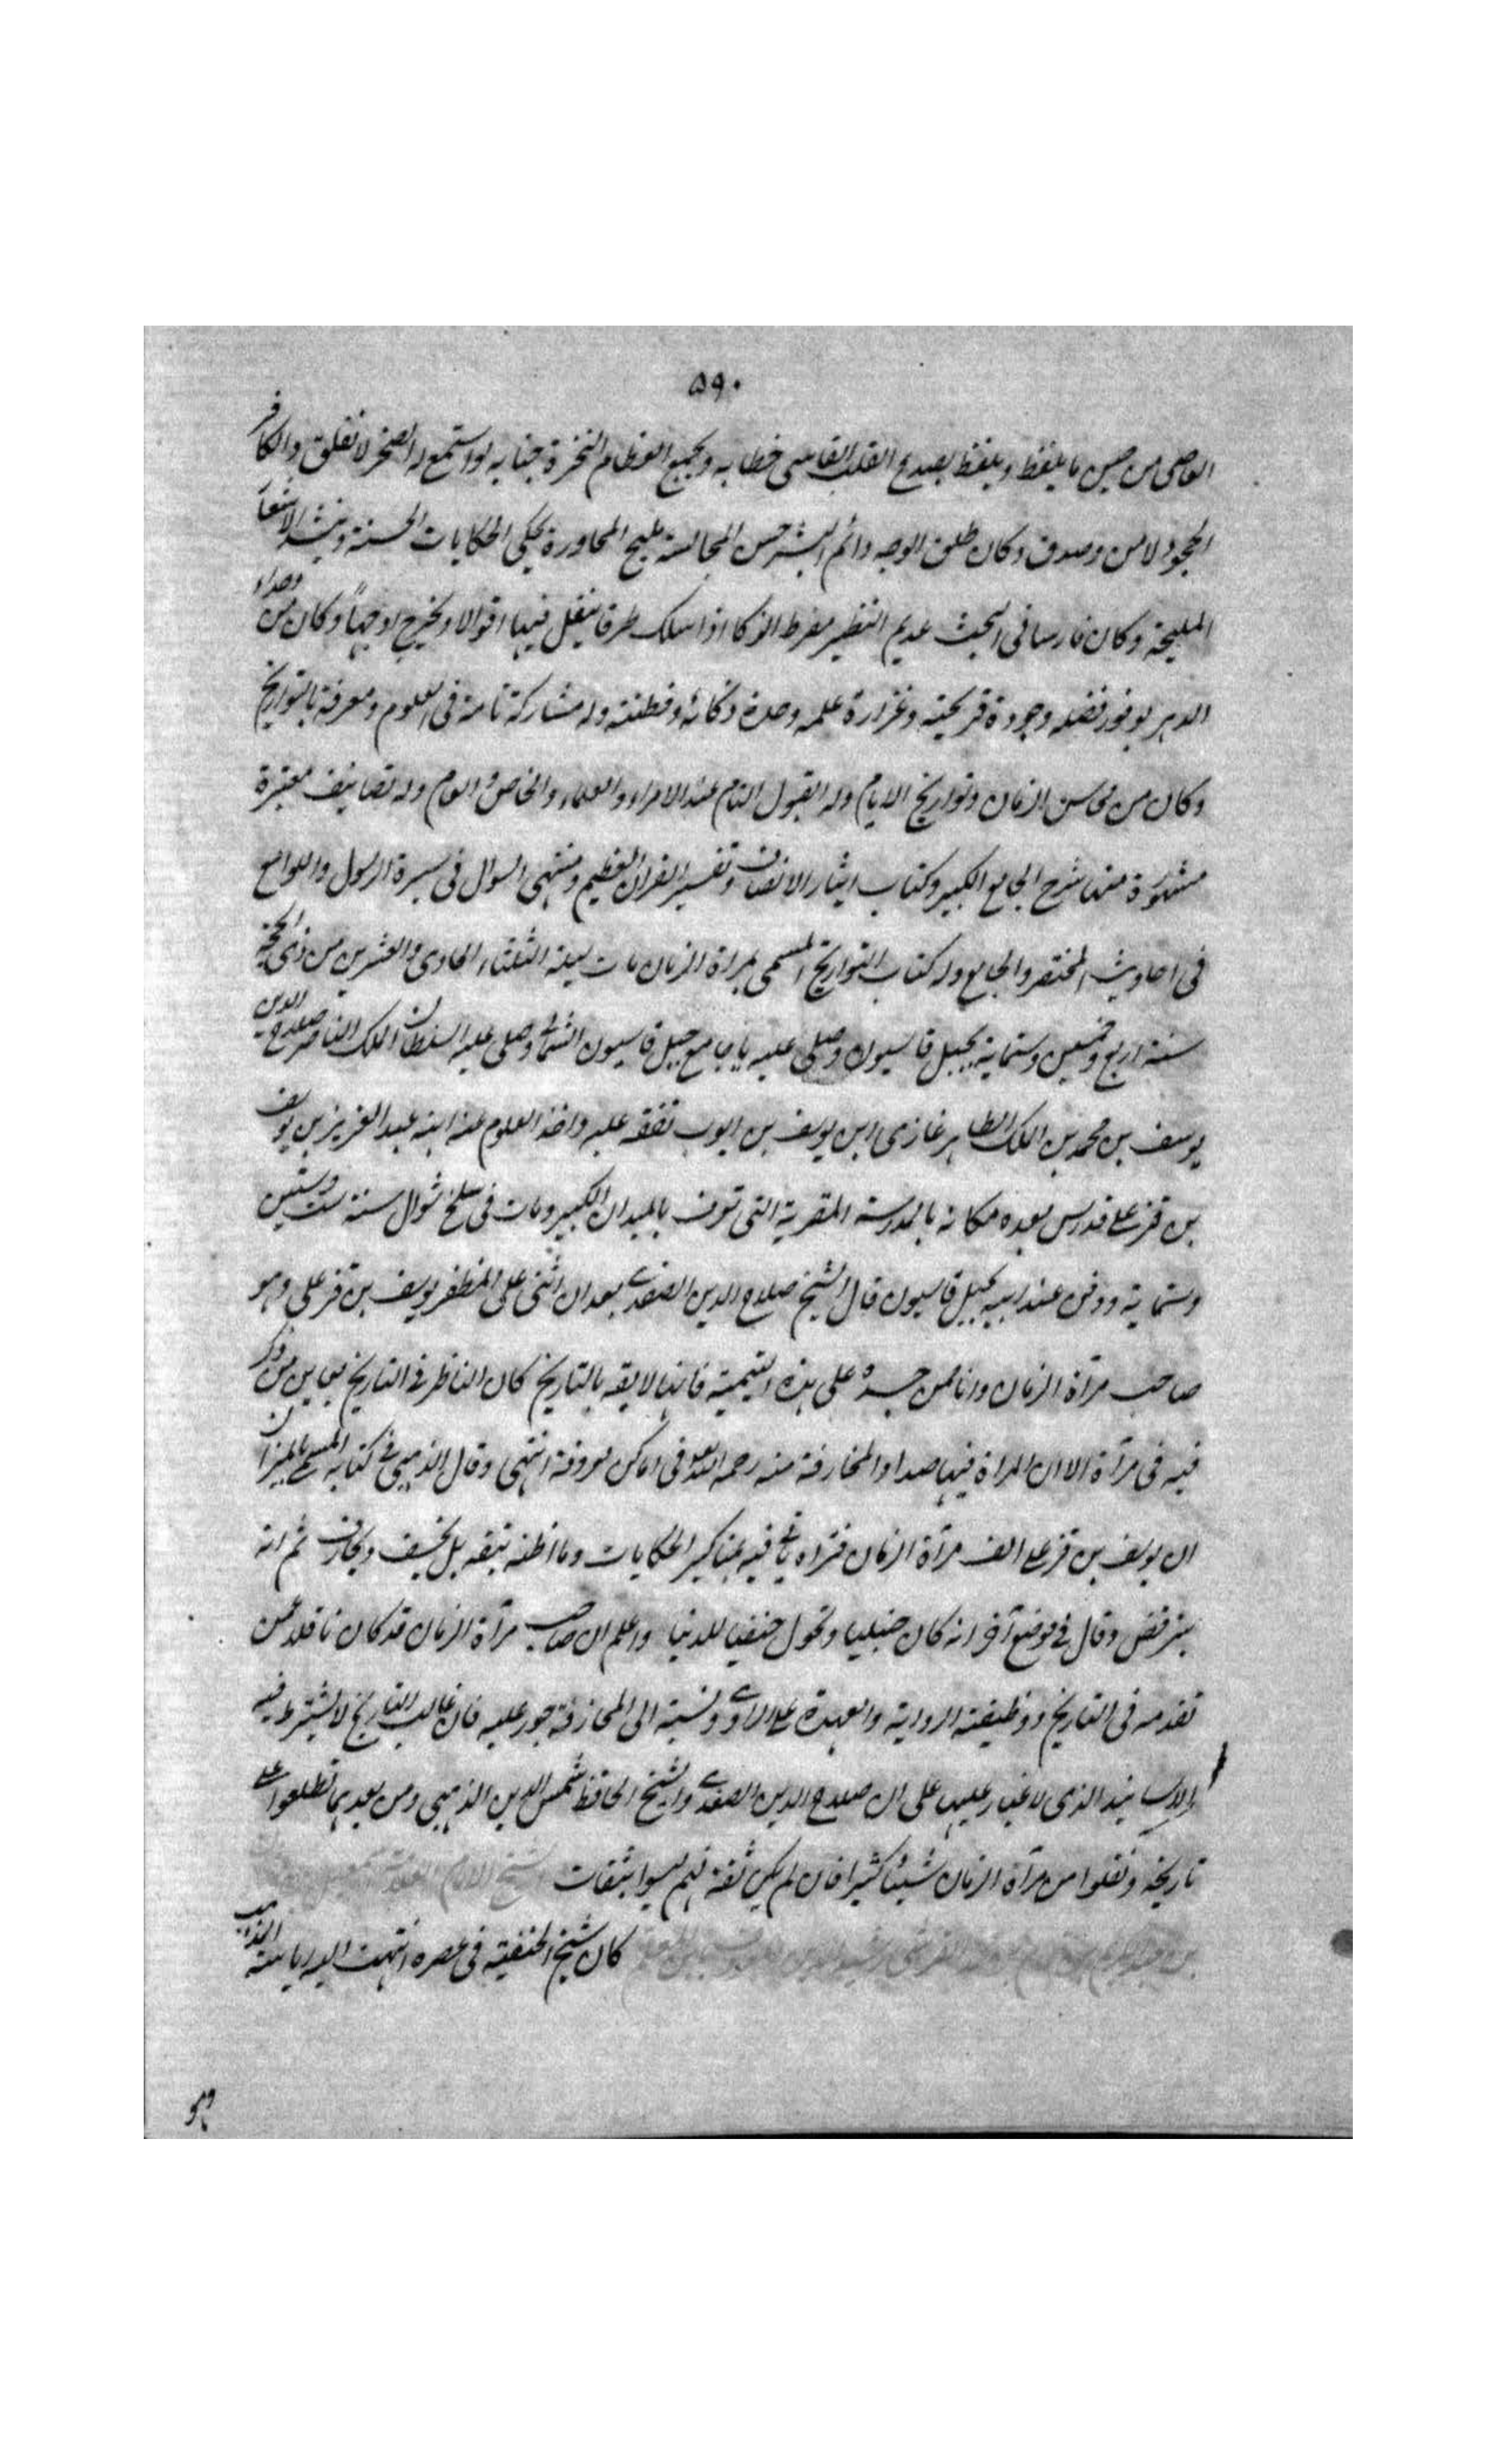 ٥٩٠
العاصى من حين ما يلفظ ويلفظ يصدع القلب القاسى خطابه ويجمع العظام النخرة جنابه لو استمع له الصخر لانفلق والكافر
الجحود لامن وصدق وكان طلق الوجه دائم البشر حسن المجالسة مليح المحاورة يحكى الحكايات الحسنة وينشد الاشعار
المليحة وكان فارسا فى البحث عديم النظير مفرط الذكا اذا سلك طرقا ينقل فيها اقوالا ويخرج اوجها وكان من وحداء
الدهر بوفور فضله وجودة قريحته وغزارة علمه وحدة ذكائه وفطنته وله مشاركة تامة فى العلوم ومعرفة بالتواريخ
وكان من محاسن الزمان وتواريخ الايام وله القبول التام عند الامراء والعلماء والخاص والعام وله تصانيف معتبرة
مشهورة منها شرح الجامع الكبير وكتاب ايثار الانصاف وتفسير القران العظيم ومنتهى السوال فى سيرة الرسول واللوامع
فى احاديث المختصر والجامع وله كتاب التواريخ المسمى بمراة الزمان مات ليلة الثلثاء الحادى والعشرين من ذى الحجة
سنة اربع وخمسين وستماية بجبل قاسيون وصلى عليه بباب جامع جبل قاسيون الشمالى وصلى عليه السلطان الملك الناصر صلاح الدين
يوسف بن محمد بن الملك الظاهر غازى ابن يوسف بن ايوب تفقه عليه واخذ العلوم عنه ابنه عبد العزيز بن يوسف
بن قزعلى فدرس بعده مكانه بالمدرسة المقرية التى تعرف بالميدان الكبير ومات فى سلخ شوال سنة ست وستين
وستماية ودفن عند ابيه بجبل قاسيون قال الشيخ صلاح الدين الصفدى بعد ان اثنى على المظفر يوسف بن قزعلى وهو
صاحب مرآة الزمان وانا ممن حسده على هذه التسمية فانها لايقه بالتاريخ كان الناظر فى التاريخ يعاين من ذكر
فيه فى مرآة الا ان المراة فيها صدا والمخارفة منه رحمه الله تعالى فى اماكن معروفة انتهى وقال الذهبى فى كتابه المسمى بالميزان
ان يوسف بن قزعلى الف مرآة الزمان فتراه ياتى فيه بمناكير الحكايات وما اظنه بثقه بل يخسف ويجازف ثم انه
يترفض وقال فى موضع آخر انه كان حنبليا وتحول حنفيا للدنيا واعلم ان صاحب مرآة الزمان قد كان ناقلا عمن
تقدمه فى التاريخ ووظيفته الرواية والعهدة على الراوى ونسبته الى المجازفة جور عليه فان غالب التاريخ لا يشترط فيه
الاسانيد الذى لا غبار عليها على ان صلاح الدين الصفدى والشيخ الحافظ شمس الدين الذهبى ومن بعدهما تطلعوا على
تاريخه ونقلوا من مرآة الزمان شيئا كثيرا فان لم يكن ثقة فهم ليسوا بثقات الشيخ الامام
كان شيخ الحنفية فى عصره انتهت اليه رياسة المذهب
وهو